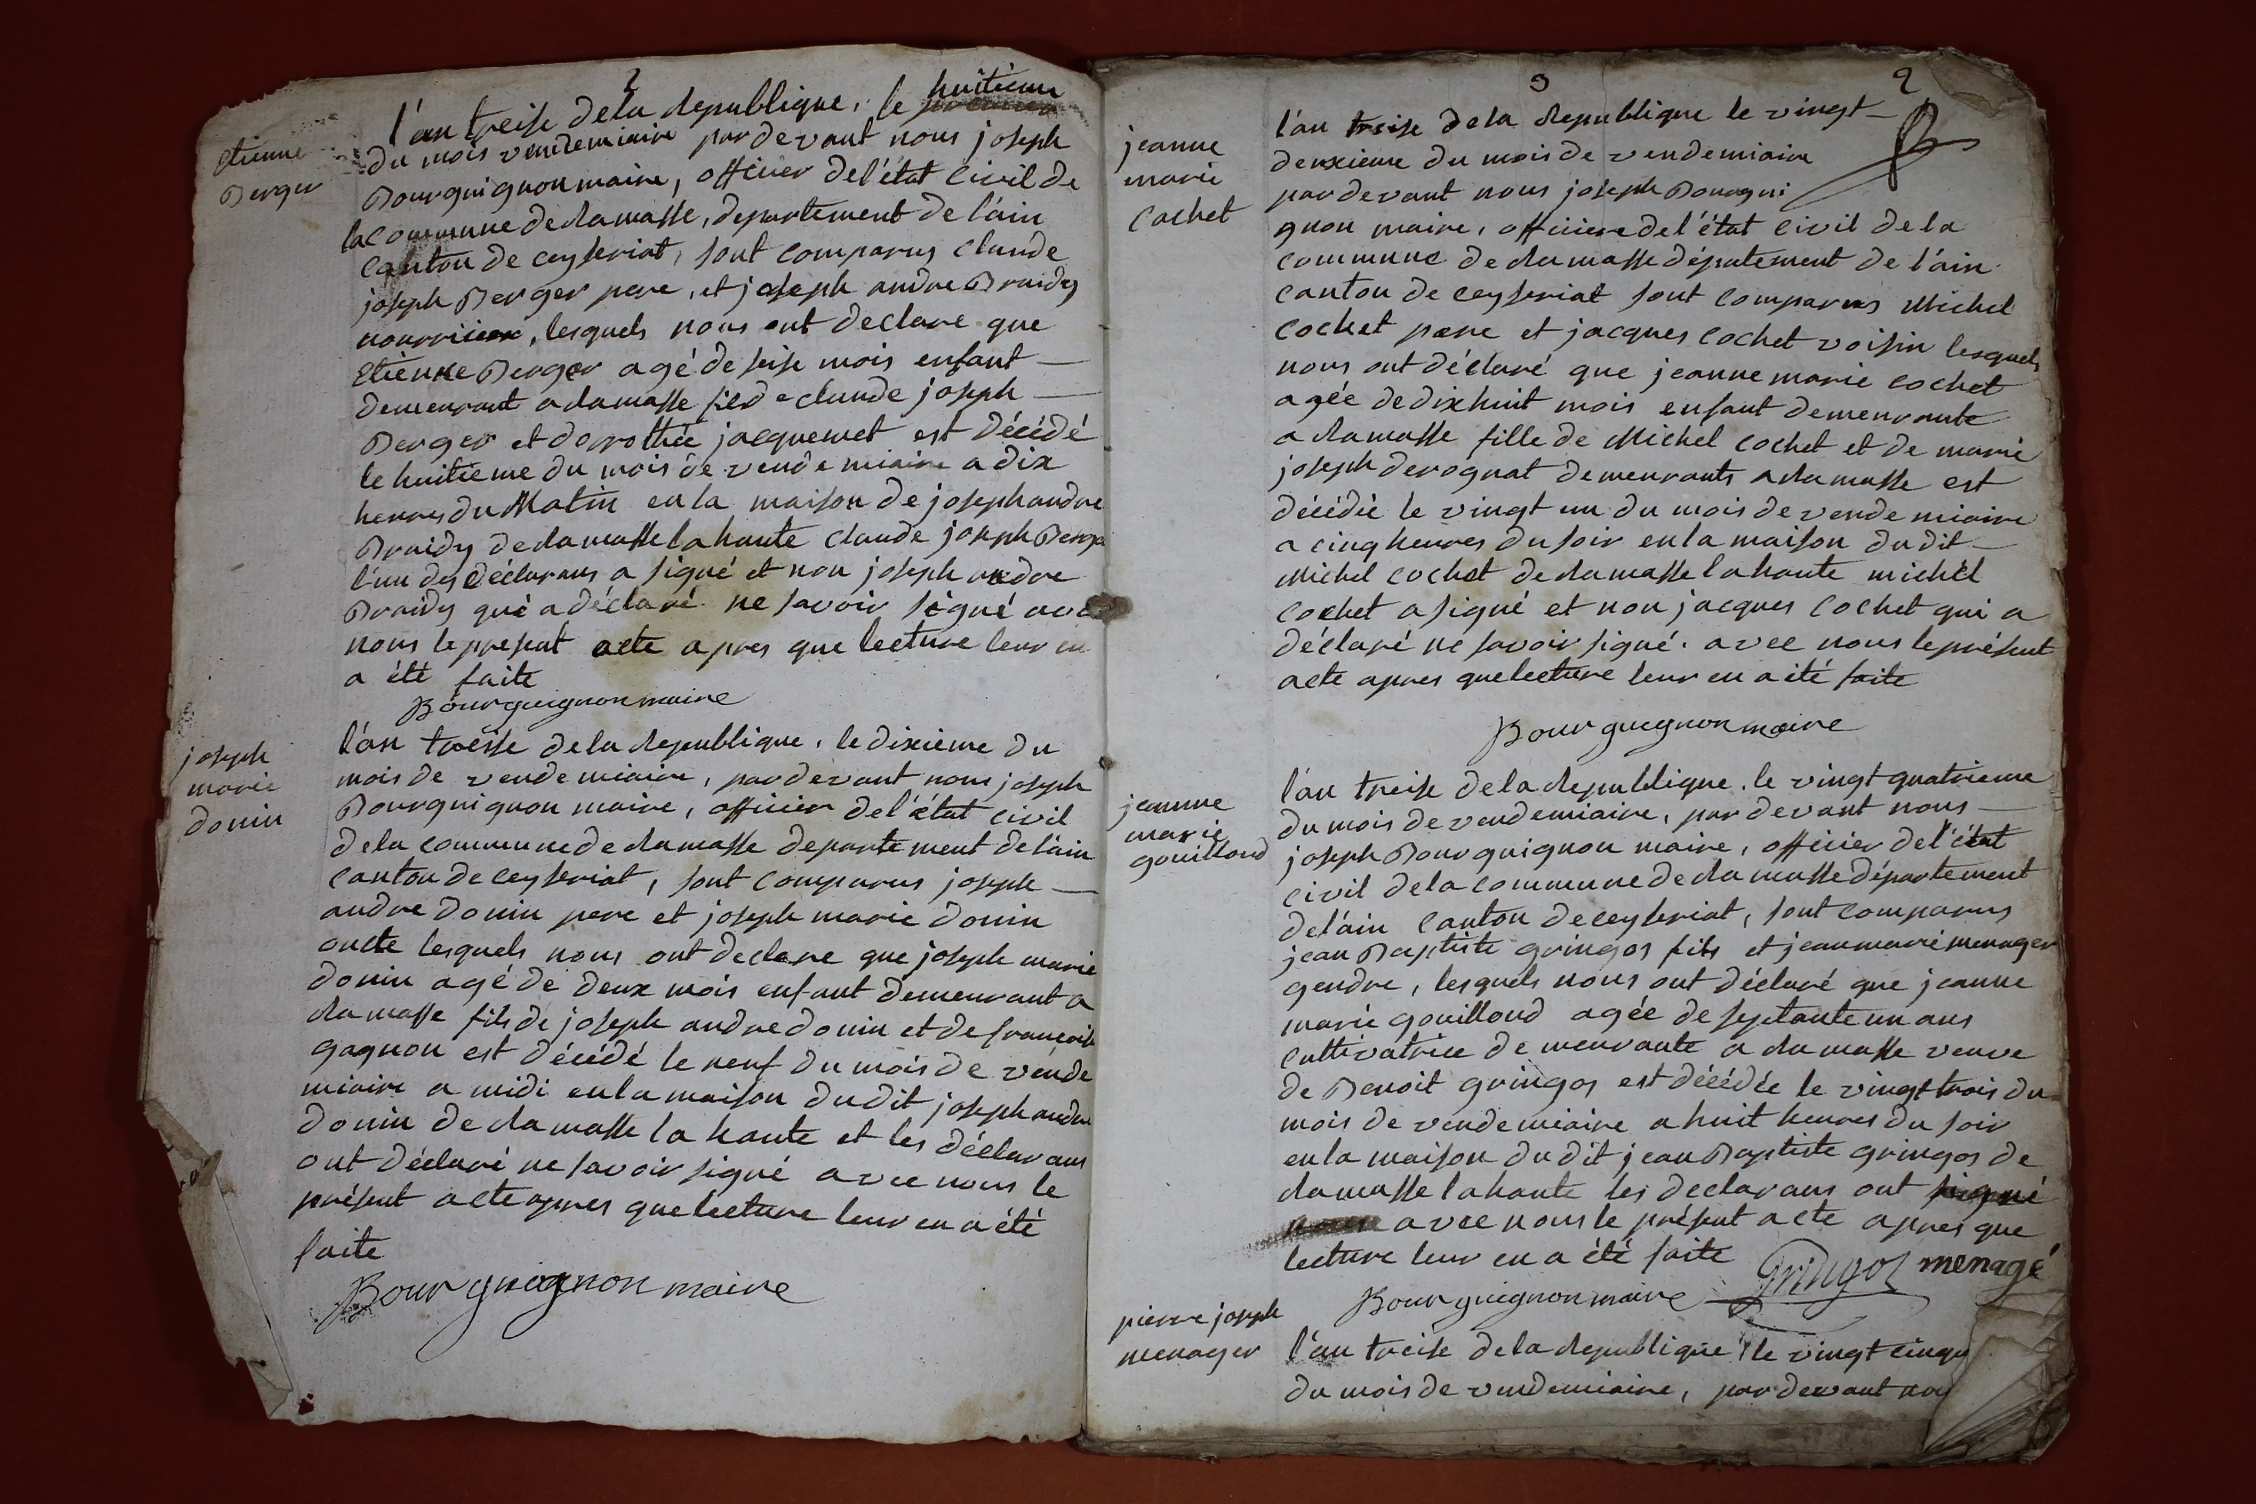 2
l'an treise de la republique, le huitieme
etienne
Berger
du mois vendemiaire pardevant nous joseph
Bourguignon maire, officier de l'état civil de
la commune de ramasse, departement de l'ain
canton de ceyseriat, sont comparus claude
joseph Berger pere, et joseph andre Braidy
nourricier, lesquels nous ont declare que
etienne Berger agé de seise mois enfant
demeurant a ramasse fils de claude joseph
Berger et dorothée jacquemet est décédé
le huitieme du mois de vendemiaire a dix
heures du Matin en la maison de joseph andre
Braidy de ramasse la haute claude joseph Berger
l'un des déclarans a signé et non joseph andre
Braidy qui a déclaré ne savoir signé avec
nous le present acte apres que lecture leur en
a été faite
Bourguignon maire
joseph
marie
donin
l'an treise de la republique, le dixieme du
mois de vendemiaire, pardevant nous joseph
Bourguignon maire, officier de l'état civil
de la commune de ramasse departement de l'ain
canton de ceyseriat, sont comparus joseph
andre donin pere et joseph marie donin
oncle lesquels nous ont declare que joseph marie
donin agé de deux mois enfant demeurant a
ramasse fils de joseph andre donin et de francoise
gagnon est décédé le neuf du mois de vende
miaire a midi en la maison du dit joseph andre
donin de ramasse la haute et les déclarans
ont déclaré ne savoir signé avec nous le
présent acte apres que lecture leur en a été
faite
Bourguignon maire
3 2
jeanne
marie
cochet
l'an treise de la republique le vingt
deuxieme du mois de vendemiaire
pardevant nous joseph Bourgui
gnon maire, officiere de l'état civil de la
commune de ramasse département de l'ain
canton de ceyseriat sont comparus Michel
cochet pere et jacques cochet voisin lesquels
nous ont déclaré que jeanne marie cochet
agée de dixhuit mois enfant demeurante
a ramasse fille de Michel cochet et de marie
joseph derognat demeurants a ramasse est
décédée le vingt un du mois de vendemiaire
a cinq heures du soir en la maison du dit
Michel cochet de ramasse la haute michel
cochet a signé et non jacques cochet qui a
déclaré ne savoir signé. avec nous le présent
acte apres que lecture leur en a été faite
Bourguignon maire
jeanne
marie
gouilloud
l'an treise de la republique. le vingt quatrieme
du mois de vendemiaire, pardevant nous
joseph Bourguignon maire, officier de l'état
civil de la commune de ramasse département
de l'ain canton de ceyseriat, sont comparus
jean Baptiste gringos fils et jean marie menager
gendre, lesquels nous ont déclaré que jeanne
marie gouilloud agée de septante un ans
cultivatrice demeurante a ramasse veuve
de Benoit gringos est décédée le vingt trois du
mois de vendemiaire a huit heures du soir
en la maison du dit jean Baptiste gringos de
ramasse la haute les declarans ont signé
avec nous le présent acte apres que
lecture leur en a été faite Gringoz menagé
Bourguignon maire
pierre joseph
menager
l'an treise de la republique le vingt cinqu
du mois de vendemiaire, pardevant nou